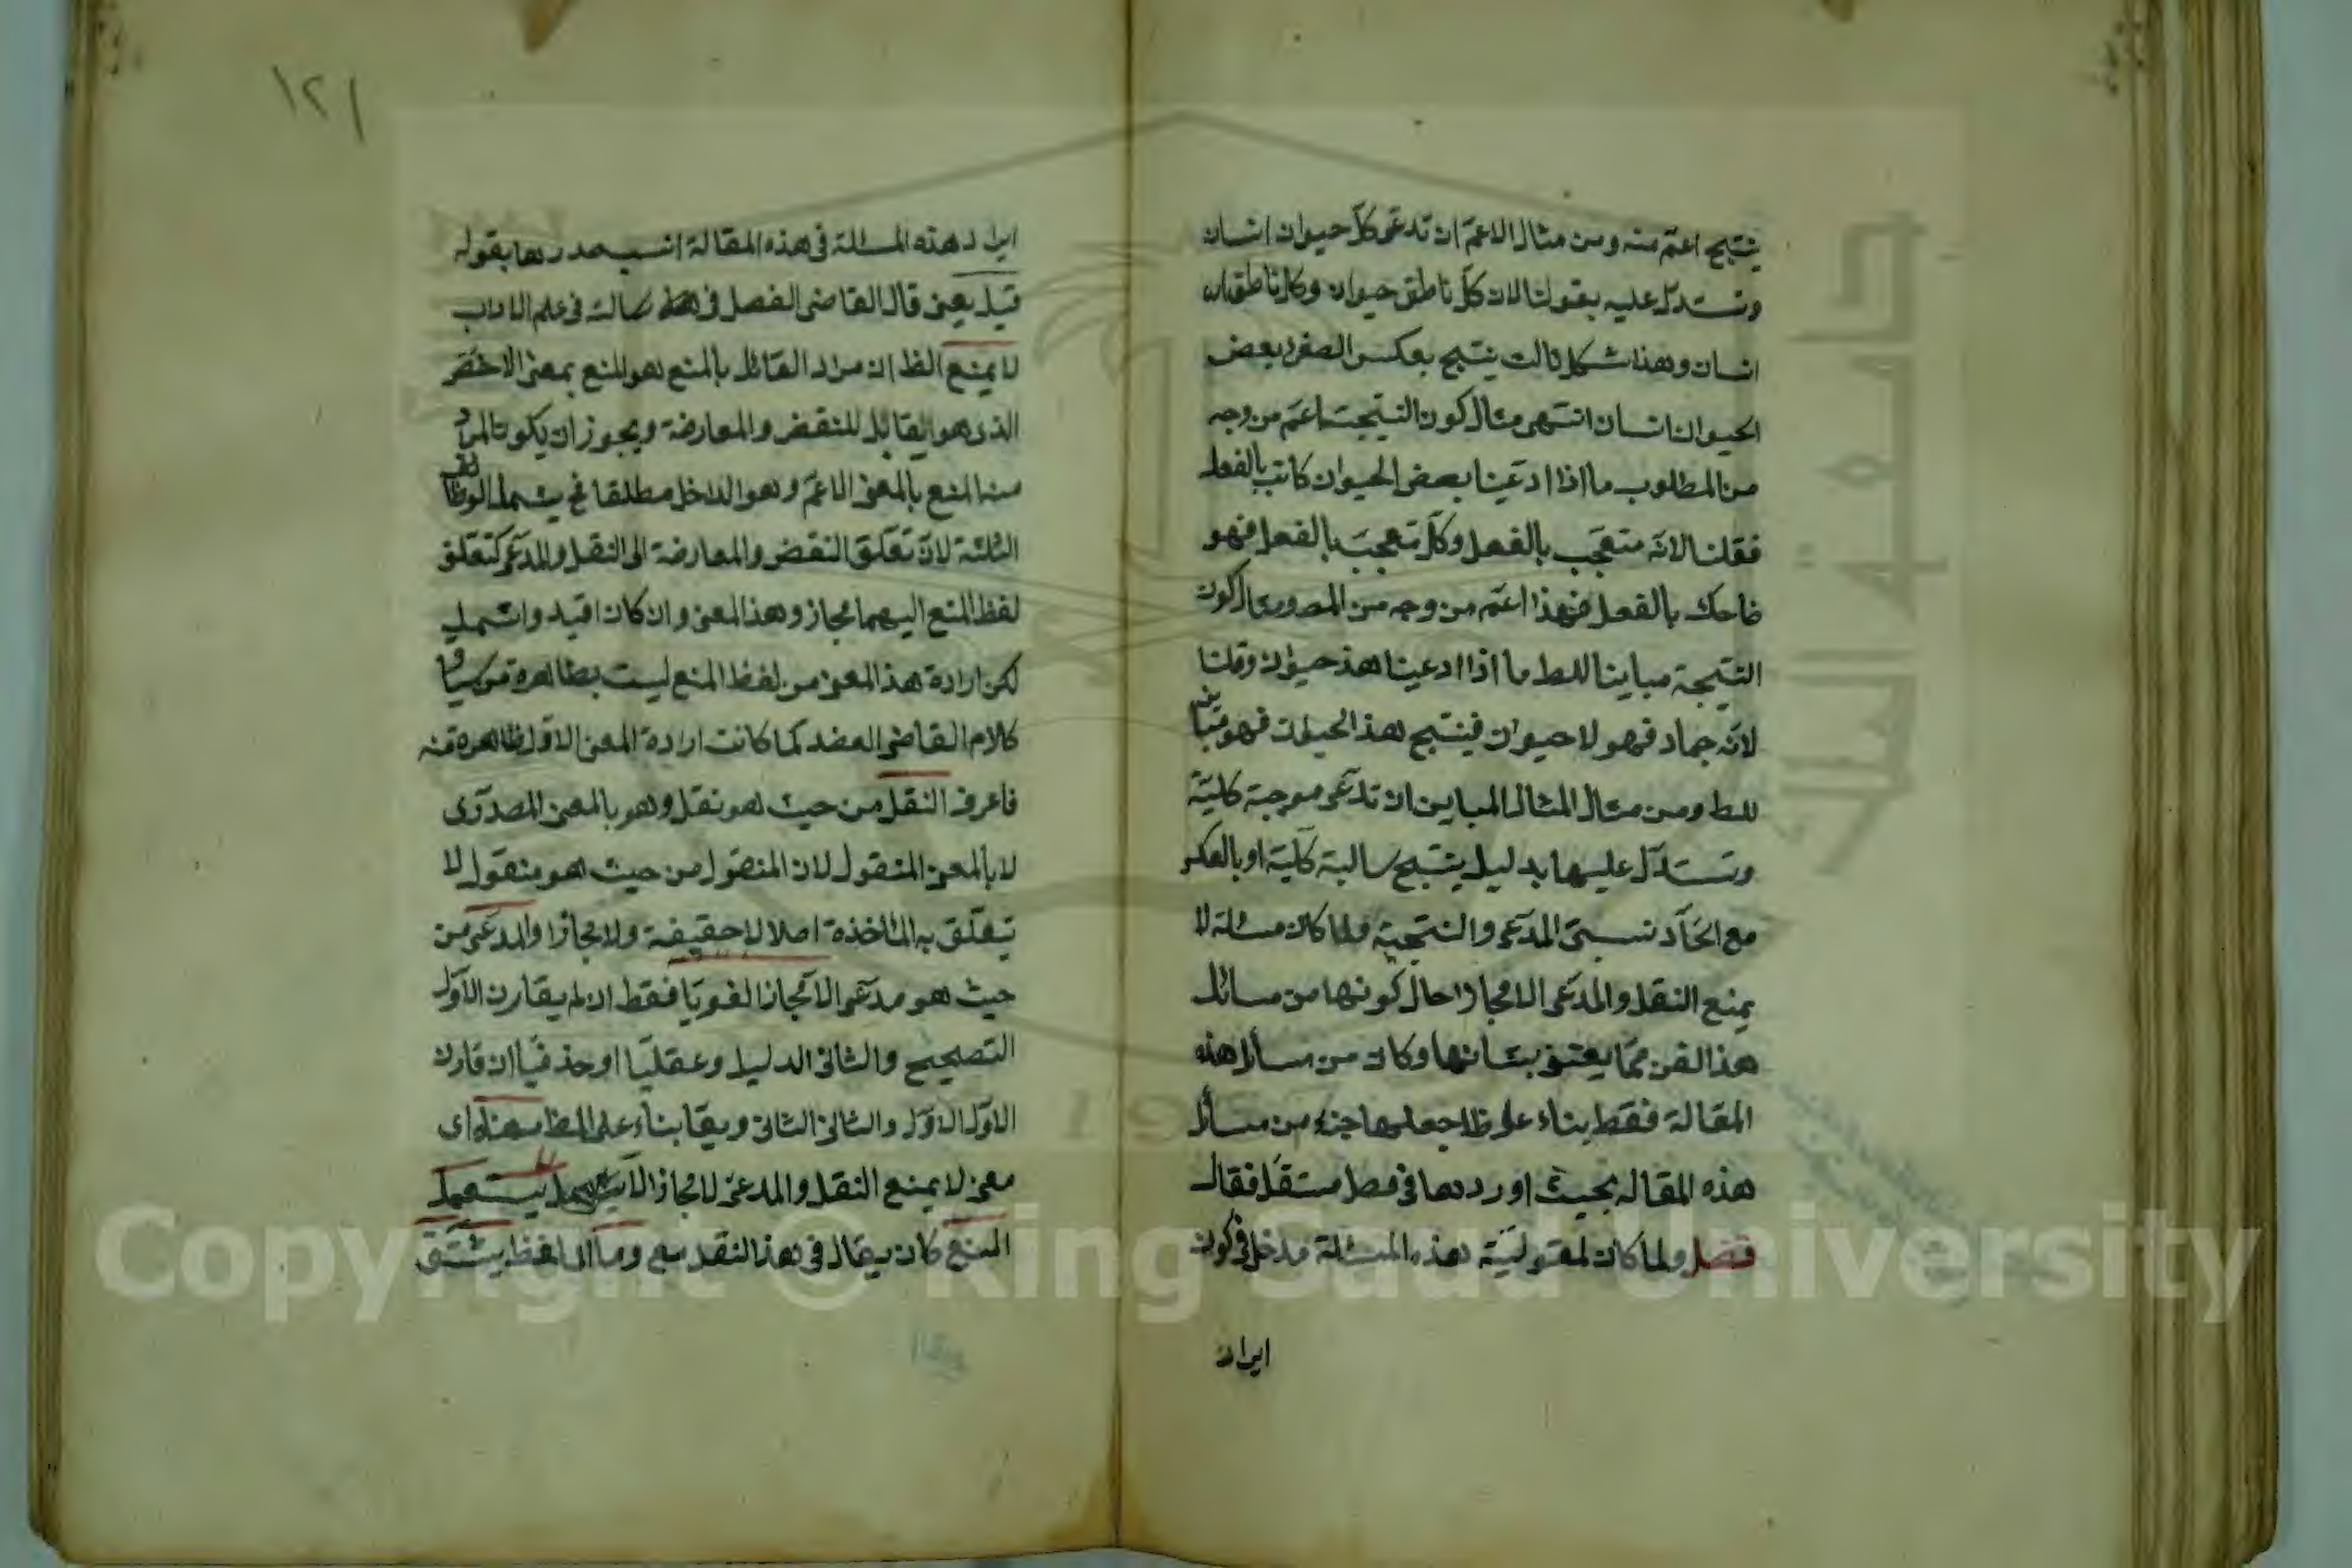 ينتج اعم منه ومن مثال الاعم ان تدعى كل حيوان انسان
وتستدل عليه بقولنا لان كل ناطق حيوان وكل ناطق
انسان وهذا شكل ثالث ينتج بعكس الصغرى بعض
الحيوان انسان انتهى مثال كون النتيجة اعم من وجه
من المطلوب ما اذا ادعينا بعض الحيوان كاتب بالفعل
فقلنا لانه متعجب بالفعل وكل متعجب بالفعل فهو
ضاحك بالفعل فهذا اعم من وجه من المص ومثال كون
النتيجة مباينا للمط ما اذا ادعينا هذا حيوان وقلنا
لانه جماد فهو لا حيوان فينتج هذا لا حيوان فهو مباين
للمط ومن مثال المثال المباين ان تدعى موجبة كلية
وتستدل عليها بدليل ينتج سالبة كلية او بالعكس
مع اتحاد نسبتى المدعى والنتيجة ولما كان مسئلة لا
يمنع النقل والمدعى الا مجازا حال كونها من مسائل
هذا الفن مما يعتنى بشانها وكان من مسائل هذه
المقالة فقط بناء على ظ جعلها جزء من مسائل
هذه المقاله بحيث اوردها فى فصل مستقل فقال
فصل ولما كان لمقولية هذه المسئلة مدخل فى كون
ايراد
١٢١
ايراد هذه المسئلة فى هذه المقالة انسب صدرها بقوله
قيل يعنى قال القاضى العضد فى رسالته فى علم الاداب
لا يمنع الظ ان مراد القائل بالمنع هو المنع بمعنى الاخص
الذى هو يقابل للنقض والمعارضة ويجوز ان يكون المراد
من المنع بالمعنى الاعم وهو الدخل مطلقا فح يشمل الوظائف
الثلثة لان تعلق النقض والمعارضة الى النقل والمدعى كتعلق
لفظ المنع اليهما مجاز وهذا المعنى وان كان افيد واشمل
لكن ارادة هذا المعنى من لفظ المنع ليست بظاهرة من سياق
كلام القاضى العضد كما كانت ارادة المعنى الاول ظاهرة منه
فاعرف النقل من حيث هو نقل وهو بالمعنى المصدرى
لا بالمعنى المنقول لان المنقول من حيث هو منقول لا
تتعلق به المؤاخذة اصلا لا حقيقة ولا مجازا والمدعى من
حيث هو مدعى الا مجازا لغويا فقط ان لم يقارن الاول
التصحيح والثانى الدليل وعقليا او حذفيا ان قارن
الاول الاول والثانى الثانى ويقا بناء على الظ معناه اى
معنى لا يمنع النقل والمدعى الا مجازا لا يستعمل
المنع كان يقال فى هذا النقل منع وما الى لفظ يشتق